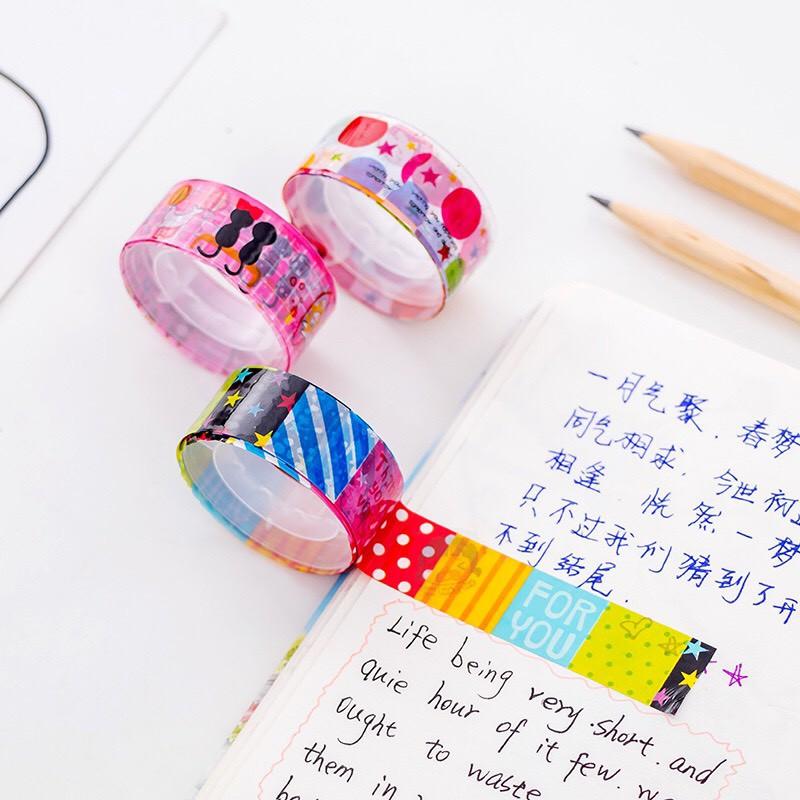 一月气聚。春梦
同气相求,今世初
相逢 恍然一梦
只不过我们猜到了开
不到结尾.
FOR
YOU
Life being very short. and
quie hour of it few. we
ought to waste
them in